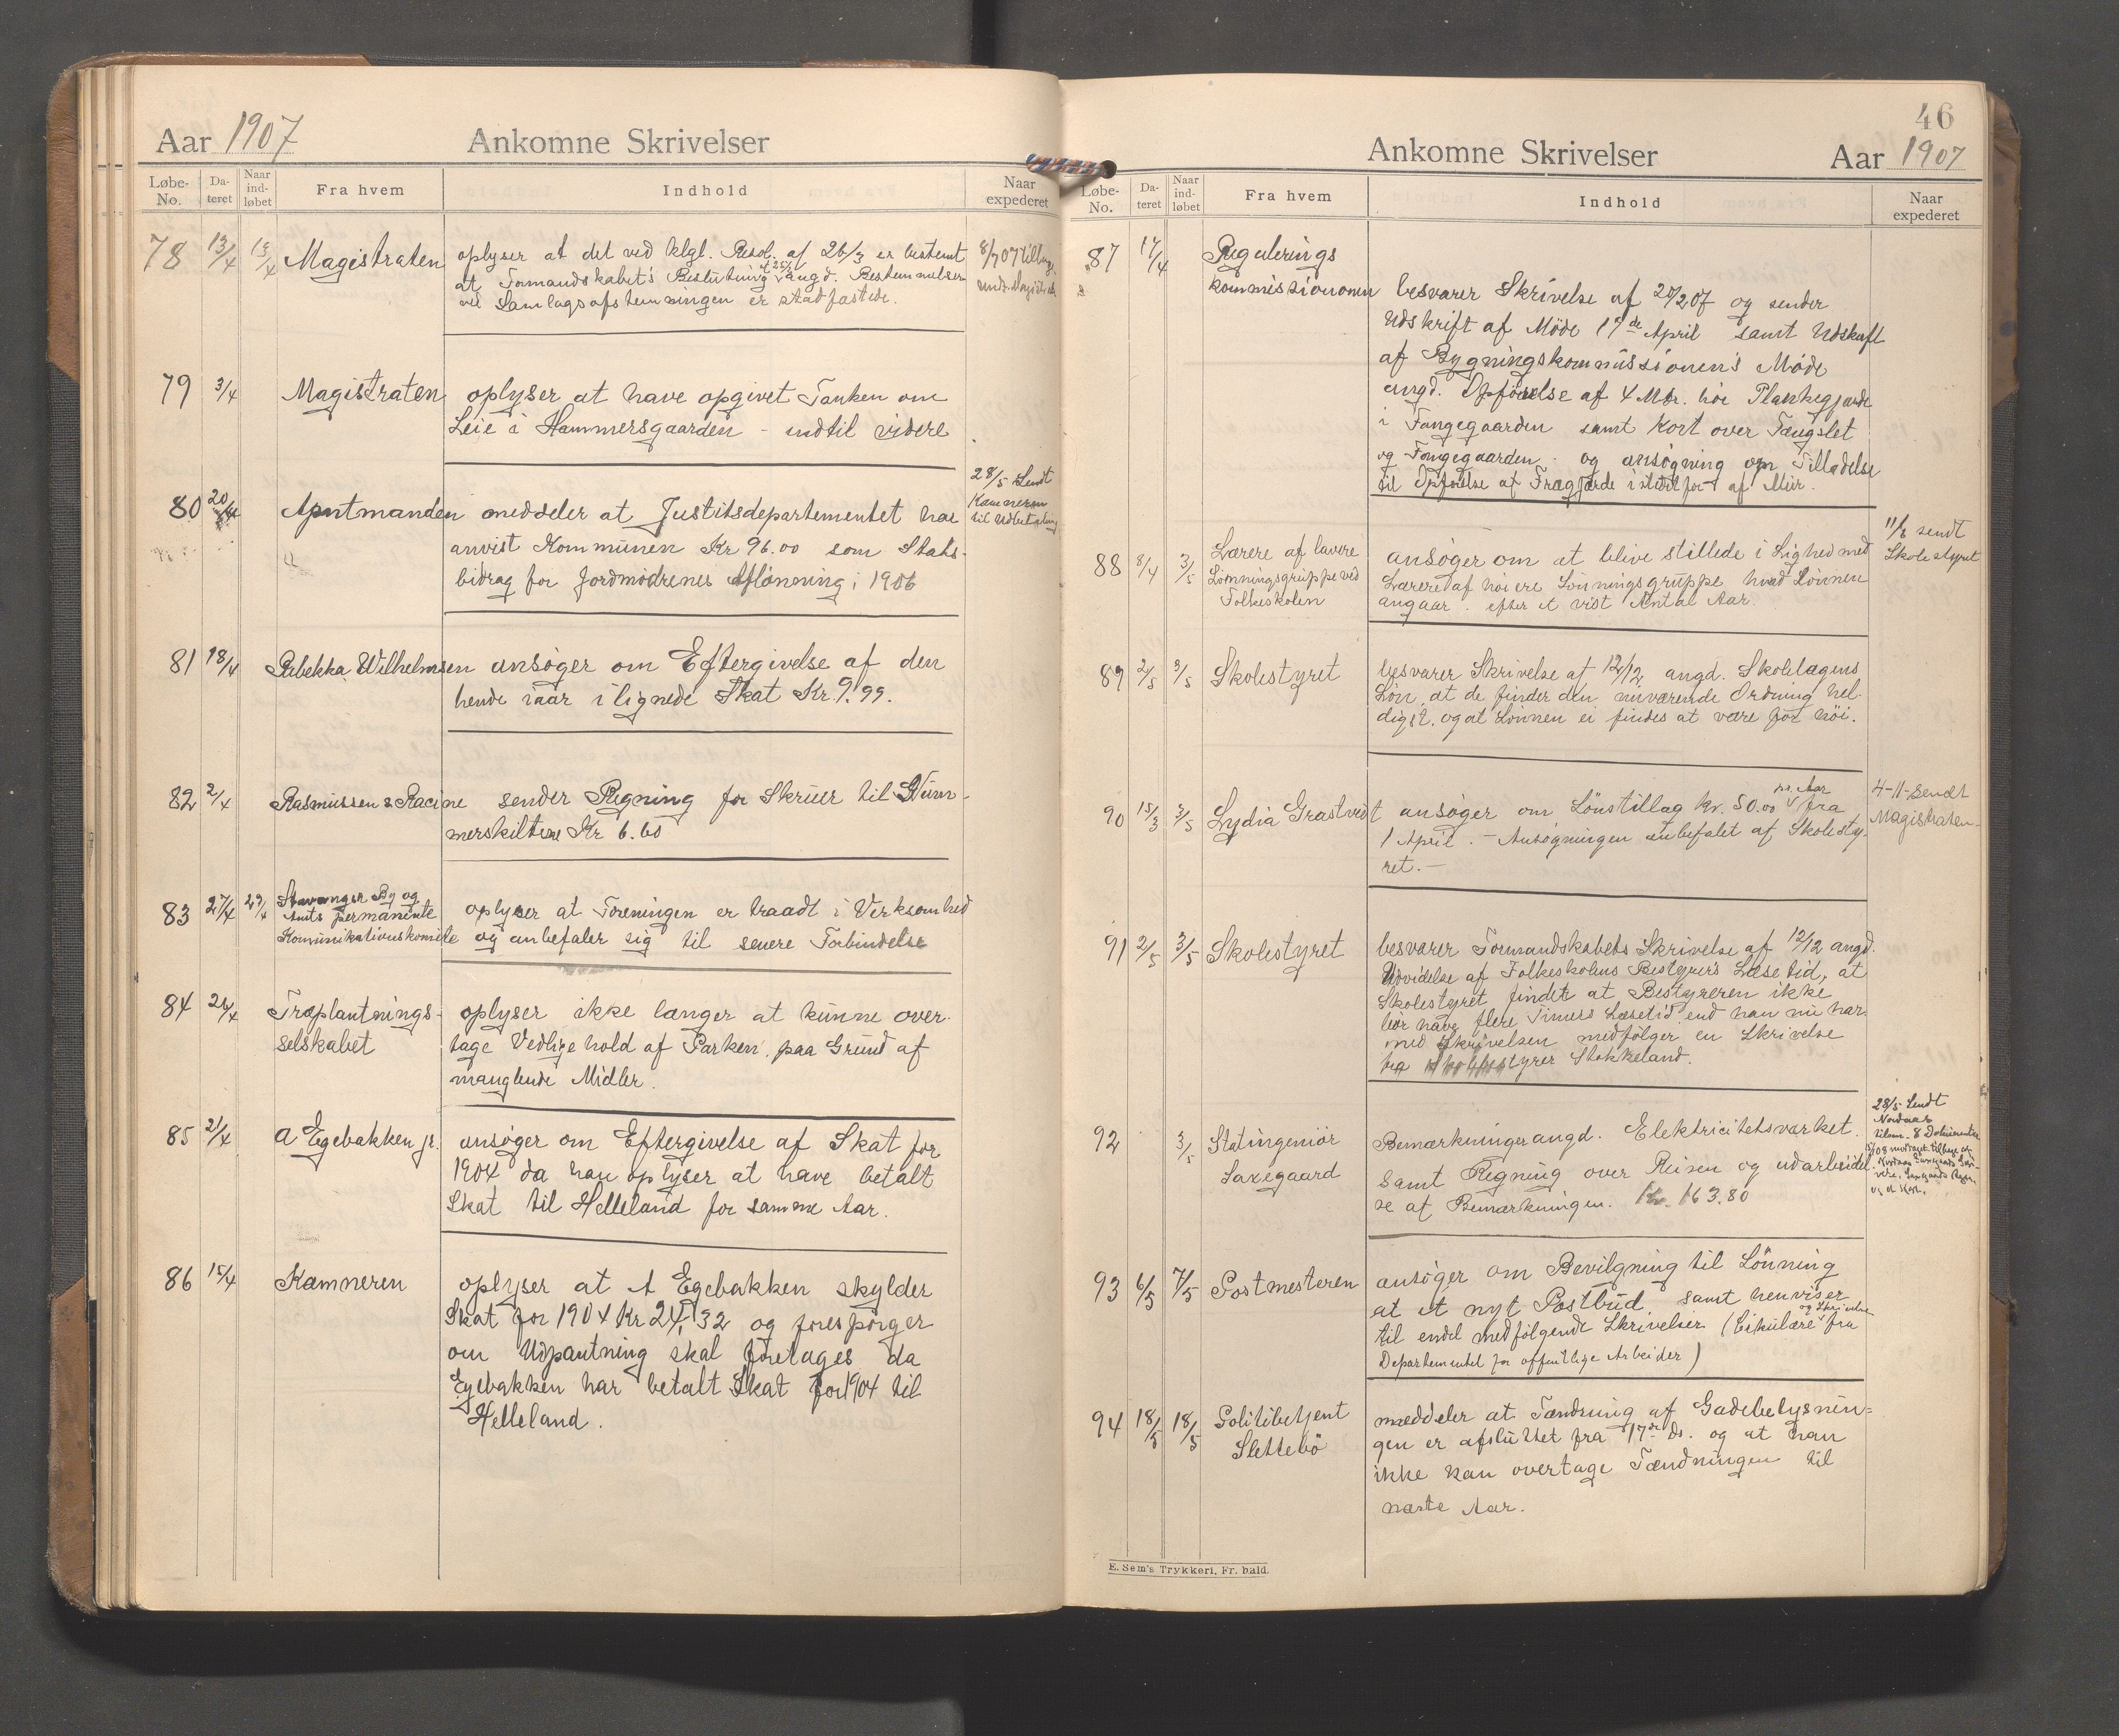 Aar 1907
Ankomne Skrivelser
Løbe-No.
Dateret
Naar indløbet
Fra hvem
Indhold
Naar expederet
78 13/4 15/4 Magistraten oplyser at det ved klgl. Resol. af 26/3 er bestemt
at Formandskabet's Beslutning af angd. Bestemmelsen
ved Samlagsafstemningen er stadfæstede.
79 3/4 Magistraten oplyser at have opgivet Tanken om
Leie i Hammersgaarden - indtil videre
80 20/4 Amtmanden meddeler at Justitsdepartementet har
anvist Kommunen Kr 96.00 som Stats-
bidrag for Jordmødrenes Aflønning i 1906
28/5 Sendt
Kamneren
til Udbetaling
81 18/4 Rebekka Wilhelmsen ansøger om Eftergivelse af den
hende iaar ilignede Skat Kr. 9.99.
82 2/4 Rasmussen & Racine sender Regning for Skruer til Num-
merskiltene Kr 6.60
83 27/4 29/4 Stavanger By og
Amts permanente
Komunikationskomite oplyser at Foreningen er traadt i Verksomhed
og anbefaler sig til senere Forbindelse
84 26/4 Træplantnings-
selskabet
oplyser ikke længer at kunne over-
tage Vedligehold af Parken paa Grund af
manglende Midler.
85 21/4 A Egebakken jr. ansøger om Eftergivelse af Skat for
1904 da han oplyser at have betalt
Skat til Helleland for samme Aar.
86 15/4 Kamneren oplyser at A Egebakken skylder
Skat for 1904 Kr 24,32 og forespørger
om Udpantning skal foretages da
Egebakken har betalt Skat for 1904 til
Helleland.
46
Ankomne Skrivelser
Aar 1907
Løbe-No.
Dateret
Naar indløbet
Fra hvem
Indhold
Naar expederet
87 17/4 Regulerings
kommissionen besvarer Skrivelse af 20/2 07 og sender
Udskrift af Møde 17de April samt Udskrift
af Bygningskommissionen's Møde
angd. Opførelse af 4 Mtr. høi Plankegjærde
i Fangegaarden samt Kort over Fængslet
og Fangegaarden. og ansøgning om Tilladelse
til Opførelse af Trægjærde istedetfor af Mur.
88 8/4 3/5 Lærere af lavere
Lønningsgruppe ved
Folkeskolen
ansøger om at blive stillede i Lighed med
Lærere af høiere Lønningsgruppe hvad Lønnen
angaar. efter et vist Antal Aar.
11/6 sendt
Skolestyret
89 2/5 3/5 Skolestyret besvarer Skrivelse af 12/12 angd. Skolelægens
Løn, at de finder den nuværende Ordning hel-
digst, og at Lønnen ei findes at være for høi.
90 15/3 3/5 Lydia Grastvedt ansøger om Lönstillæg kr. 50.00 pr. Aar fra
1 April. - Ansøgningen anbefalet af Skolesty-
ret. -
4-11- sendt
Magistraten
91 2/5 3/5 Skolestyret besvarer Formandskabets Skrivelse af 12/12 angd.
Udvidelse af Folkeskolens Bestyrer's Læsetid, at
Skolestyret finder at Bestyreren ikke
bør have flere Timers Læsetid end han nu har
med Skrivelsen medfølger en Skrivelse
fra Skolebestyrer Stokkeland.
92 3/5 Statingeniör
Saxegaard
Bemærkninger angd. Elektricitetsværket.
samt Regning over Reisen og udarbeidel-
se af Bemærkningen. Kr. 163.80
28/5 Sendt
Nordaas
93 6/5 7/5 Postmesteren ansøger om Bevilgning til Lönning
at et nyt Postbud, samt henviser
til endel medfølgende Skrivelser (Cirkulære og Skrivelse fra
Departementet for offentlige Arbeider)
94 18/5 18/5 Politibetjent
Slettebö
meddeler at Tændning af Gadebelysnin-
gen er afsluttet fra 17de ds. og at han
ikke kan overtage Tændningen til
næste Aar.
E. Sem's Trykkeri, Fr. hald.